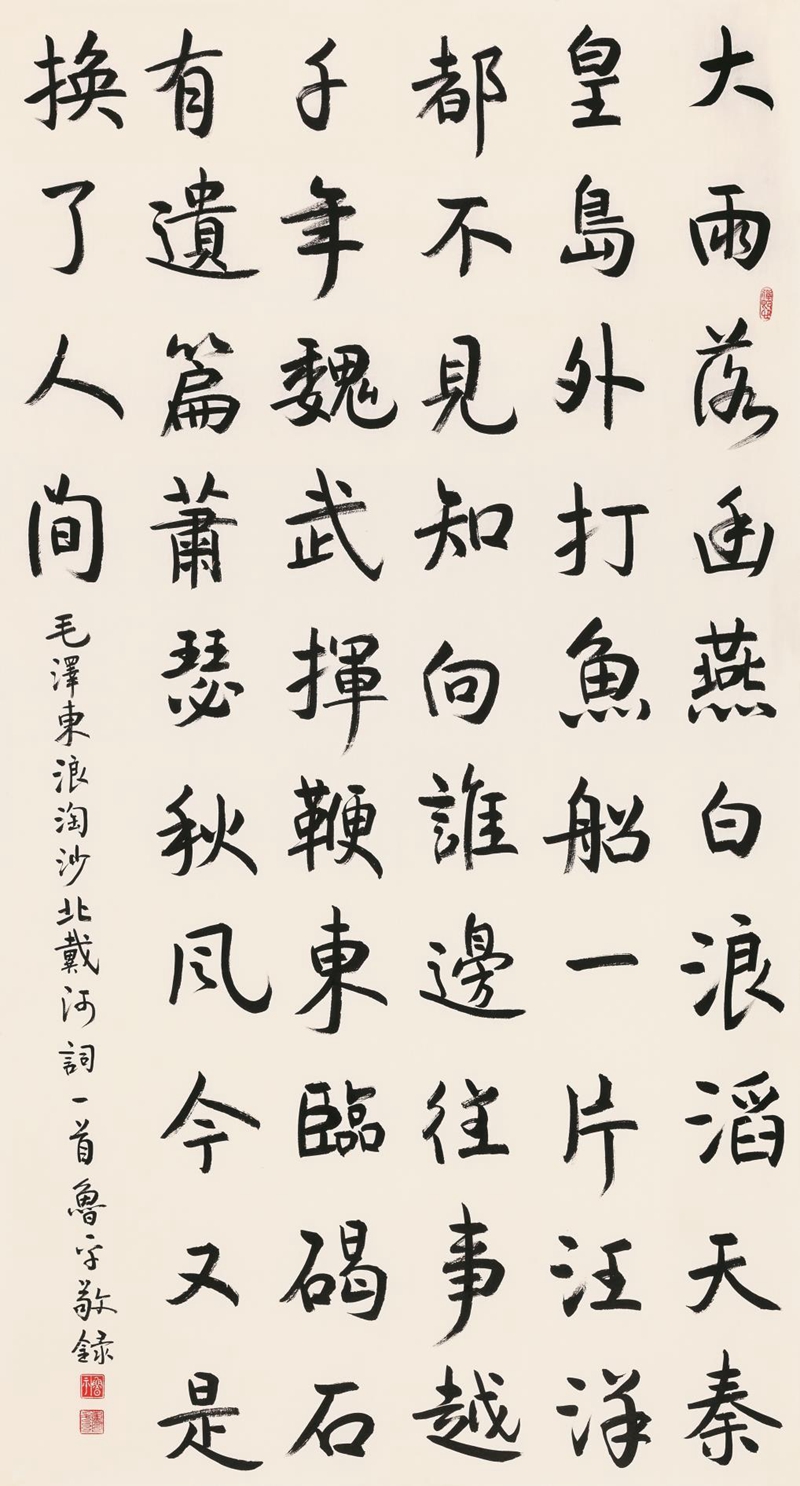 大雨落幽燕白浪滔天秦
皇島外打魚船一片汪洋
都不見知向誰邊往事越
千年魏武揮鞭東臨碣石
有遺篇蕭瑟秋風今又是
換了人間
毛澤東浪淘沙北戴河詞一首魯平敬錄